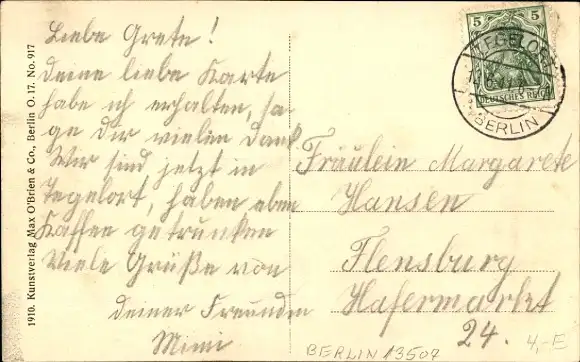 Liebe Grete!
Deine liebe Karte
habe ich erhalten, sa-
ge dir vielen Dank
Wir sind jetzt in
Tegelort, haben eben
Kaffee getrunken
Viele Grüße von
deiner Freundin
Mimi
1910. Kunstverlag Max O'Brien & Co., Berlin O. 17. No. 917
5 5
DEUTSCHES REICH
TEGELORT
BERLIN
Fräulein Margarete
Hansen
Flensburg
Hafermarkt
24.
4,-E
BERLIN 13507